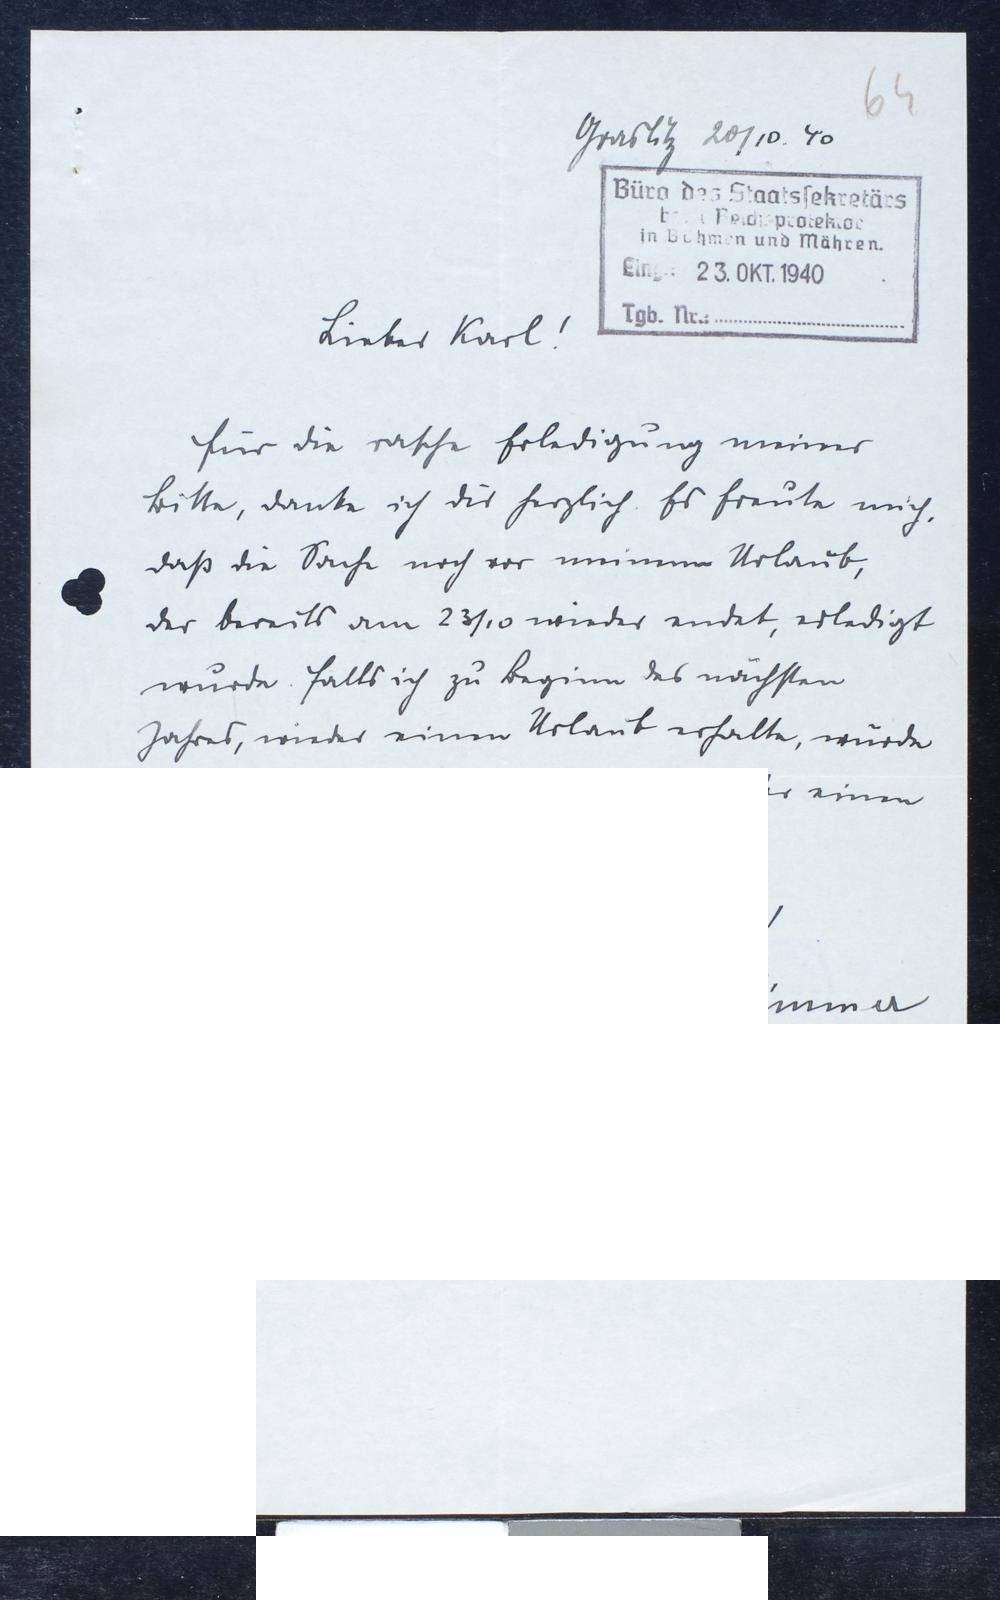 64
Graslitz 20/10. 40
Büro des Staatssekretärs
beim Reichsprotektor
in Böhmen und Mähren.
Eing.: 23. OKT. 1940
Tgb. Nr.:
Lieber Karl!
für die rasche Erledigung meiner
Bitte, danke ich dir herzlich. Es freute mich,
daß die Sache noch vor meinem Urlaub,
der bereits am 23/10 wieder endet, erledigt
wurde. Falls ich zu Beginn des nächsten
Jahres, wieder einen Urlaub erhalte, würde
einen